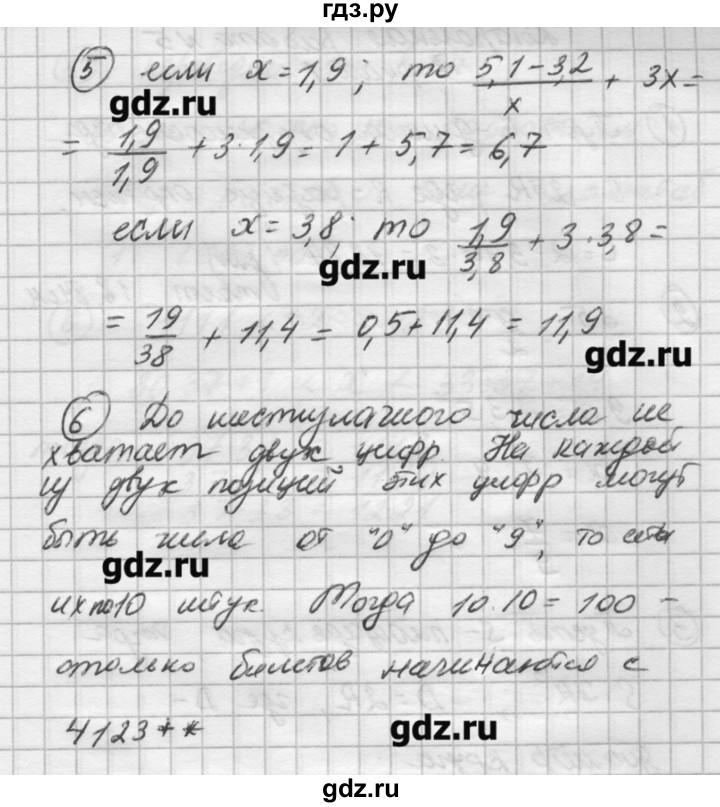 гдз.ру
⑤ если x = 1,9; то (5,1 − 3,2)/x + 3x =
gdz.ru
= 1,9/1,9 + 3·1,9 = 1 + 5,7 = 6,7
если x = 3,8; то 1,9/3,8 + 3·3,8 =
gdz.ru
= 19/38 + 11,4 = 0,5 + 11,4 = 11,9
gdz.ru
⑥ До шестизначного числа не
хватает двух цифр На каждой
из двух позиций этих цифр могут
быть числа от "0" до "9", то есть
gdz.ru
их по 10 штук. Тогда 10·10 = 100 –
столько билетов начинаются с
4123**
gdz.ru
gdz.ru